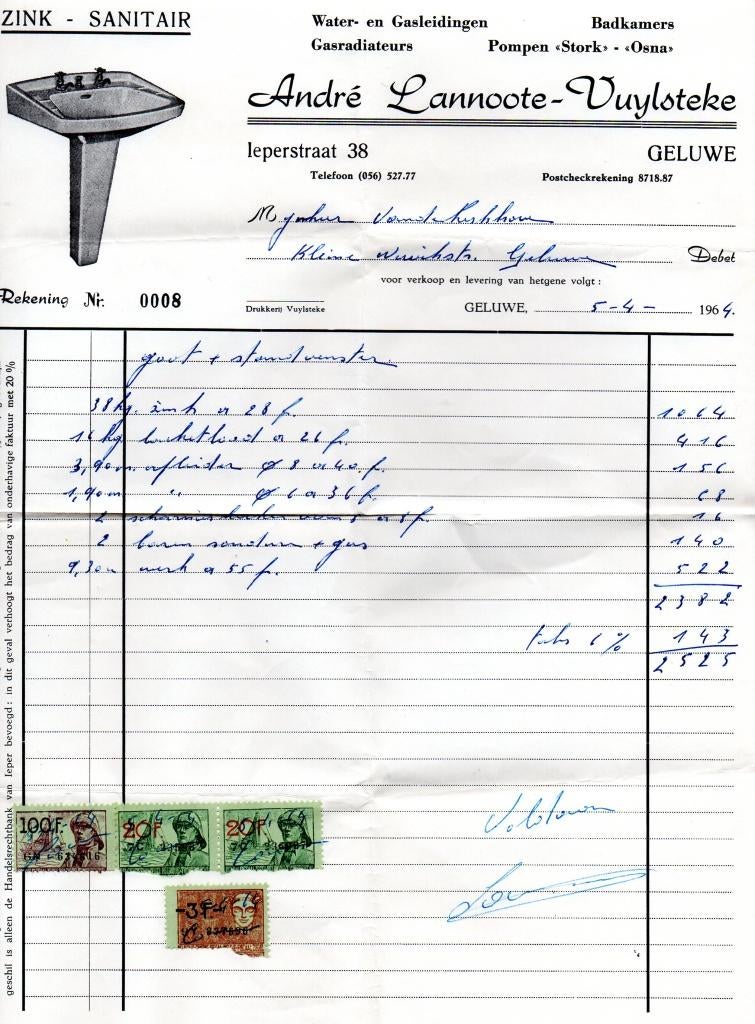 ZINK - SANITAIR
Water- en Gasleidingen Badkamers
Gasradiateurs Pompen «Stork» - «Osna»
André Lannoote-Vuylsteke
Ieperstraat 38 GELUWE
Telefoon (056) 527.77 Postcheckrekening 8718.87
M
Kleine Geluwe Debet
voor verkoop en levering van hetgene volgt :
Rekening Nr. 0008
Drukkerij Vuylsteke
GELUWE, 5-4- 1964.
goot + standvenster
38 kg. zink a 28 f. 1064
16 kg a 26 f. 416
3,90m afleider Ø 8 a 40 f. 156
1,90m " Ø 6 a 36 f. 68
2 a 8 f. 16
2 + gas 140
9,30u werk a 55 f. 522
2382
6 % 143
2525
Voldaan
100F. 20F 20F
-3F-
geschil is alleen de Handelsrechtbank van Ieper bevoegd : in dit geval verhoogt het bedrag van onderhavige faktuur met 20 %